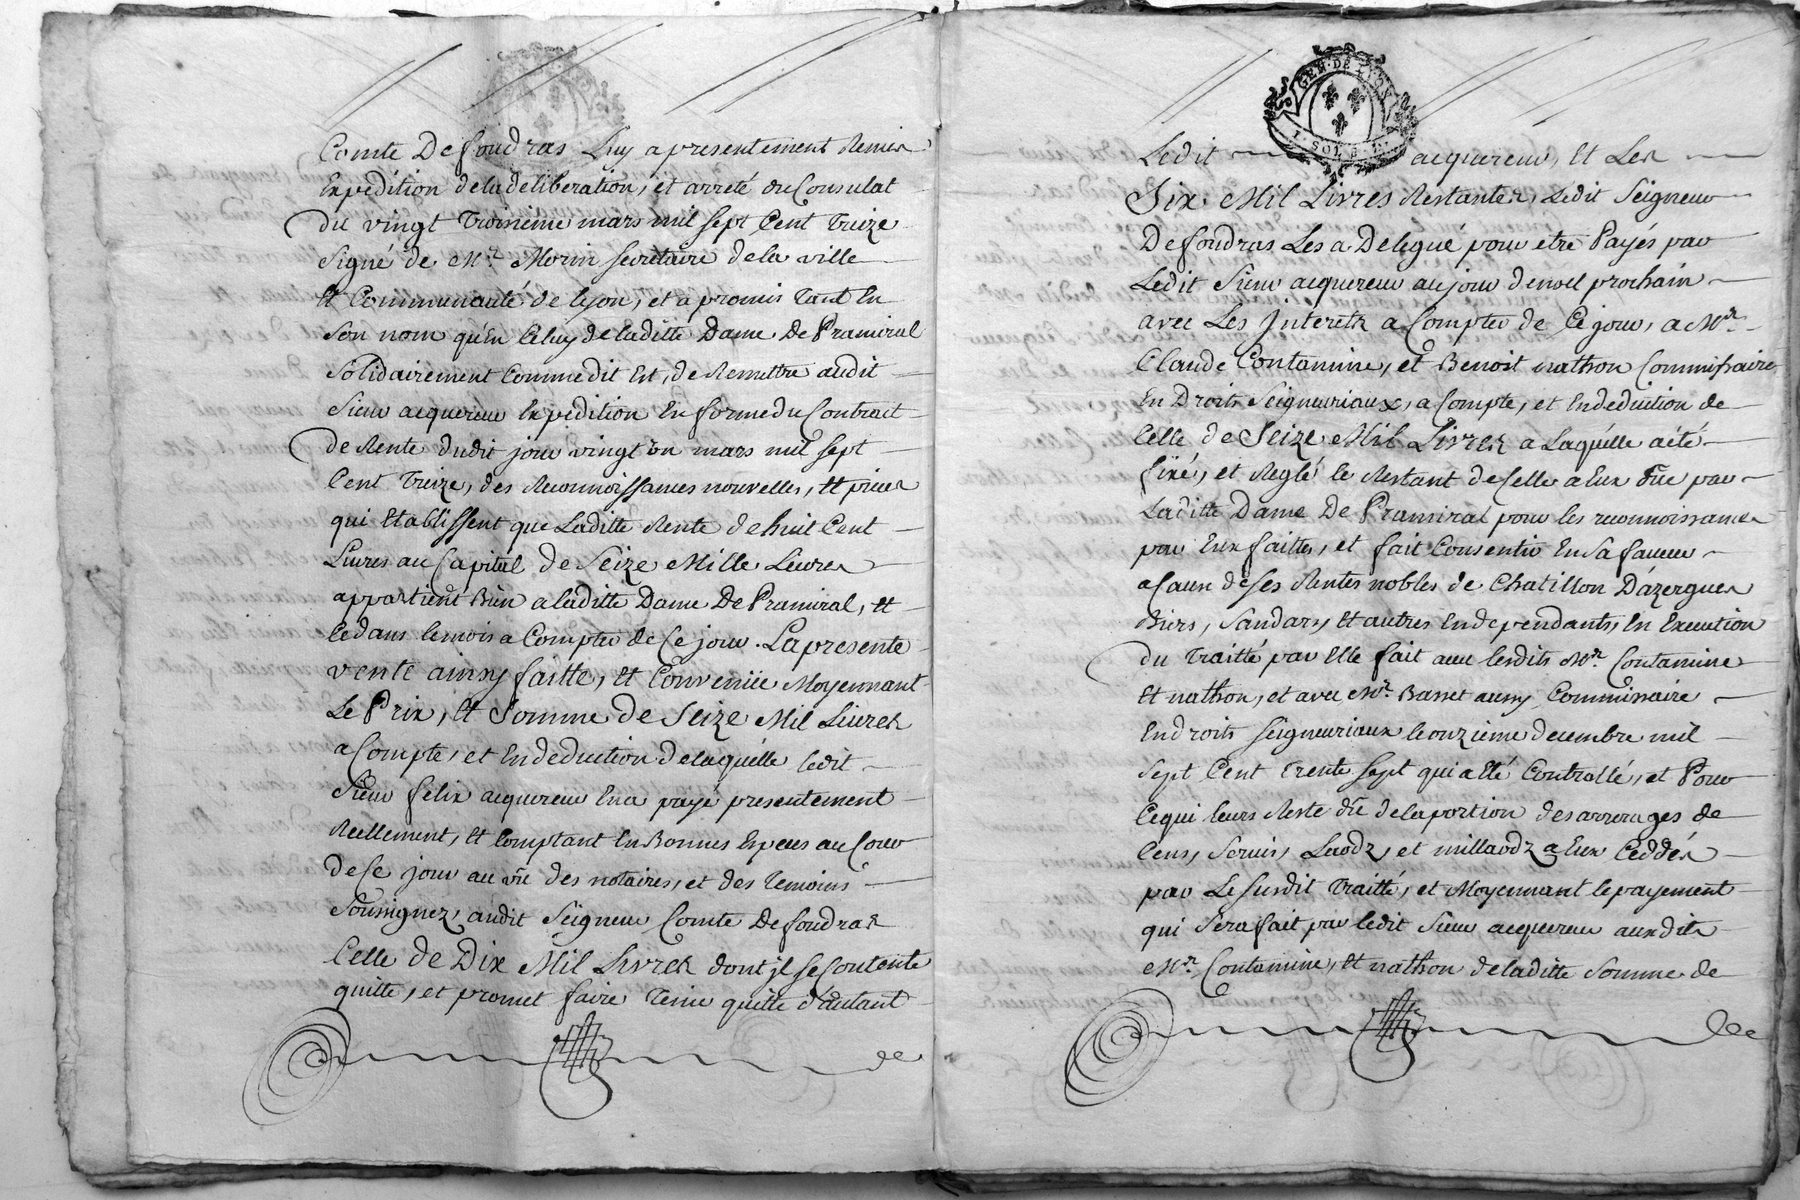 Comte De foudras Luy a presentement Remis
Expedition de la deliberation, et arreté du Consulat
du vingt Troisieme mars mil sept Cent Treize
Signé de Mr. Morin secretaire de la ville
Et Communauté de Lyon, et a promis tant En
Son nom qu'En Celuy de laditte Dame De Pramiral
Solidairement Comme dit Est, de Remettre audit
Sieur acquereur Expedition En forme du Contract
de Rente dudit jour vingt un mars mil sept
Cent Treize, des Reconnoissances nouvelles, Et pieces
qui Etablissent que Laditte Rente de huit Cent
Livres au Capital de Seize Mille Livres
appartient Bien a laditte Dame De Pramiral, Et
Ce dans le mois a Compter de Ce jour. La presente
vente ainsy faitte, Et Convenüe Moyennant
Le Prix, Et Somme de Seize Mil Livres
a Compte, et En deduction de laquélle ledit
Sieur felix acquereur En a payé presentement
Réellement, Et Comptant En Bonnes Especes au Cour
de Ce jour au vû des notaires, et des Temoins
Soussignez, audit Seigneur Comte De foudras
Celle de Dix Mil Livres dont jl se Contente
quitte, et promet faire Tenir quitte d'autant
GEN. DE LYON
1. SOL
Ledit acquereur, Et Les
Six Mil Livres Restantes, Ledit Seigneur
De foudras Les a Delegué pour etre Payés par
Ledit Sieur acquereur au jour de noel prochain
avec Les Interets a Compter de Ce jour, a Mrs.
Claude Contamine, et Benoit nathon Commissaires
En Droits Seigneuriaux, a Compte, et En deduction de
Celle de Seize Mil Livres a Laquélle a été
fixé, et Reglé le Restant de Celle a Eux düe par
Laditte Dame De Pramiral pour les reconnoissances
par Eux faittes, et fait Consentir En Sa faveur
a Cause de Ses Rentes nobles de Chatillon D'azergues
Biers, Sandars, Et autres En dependants, En Execution
du Traitté par Elle fait avec lesdits Mrs. Contamine
Et nathon, et avec Mr. Basset aussy Commissaire
En droits Seigneuriaux le onzieme decembre mil
Sept Cent trente sept qui a Eté Controllé, et Pour
Ce qui leurs Reste dû de la portion des arrerages de
Cens, Servis, Laodz, et millaodz a Eux Ceddés
par Le Susdit Traitté, et Moyennant le payement
qui Sera fait par ledit Sieur acquereur auxdits
Mrs. Contamine, Et nathon de laditte Somme de